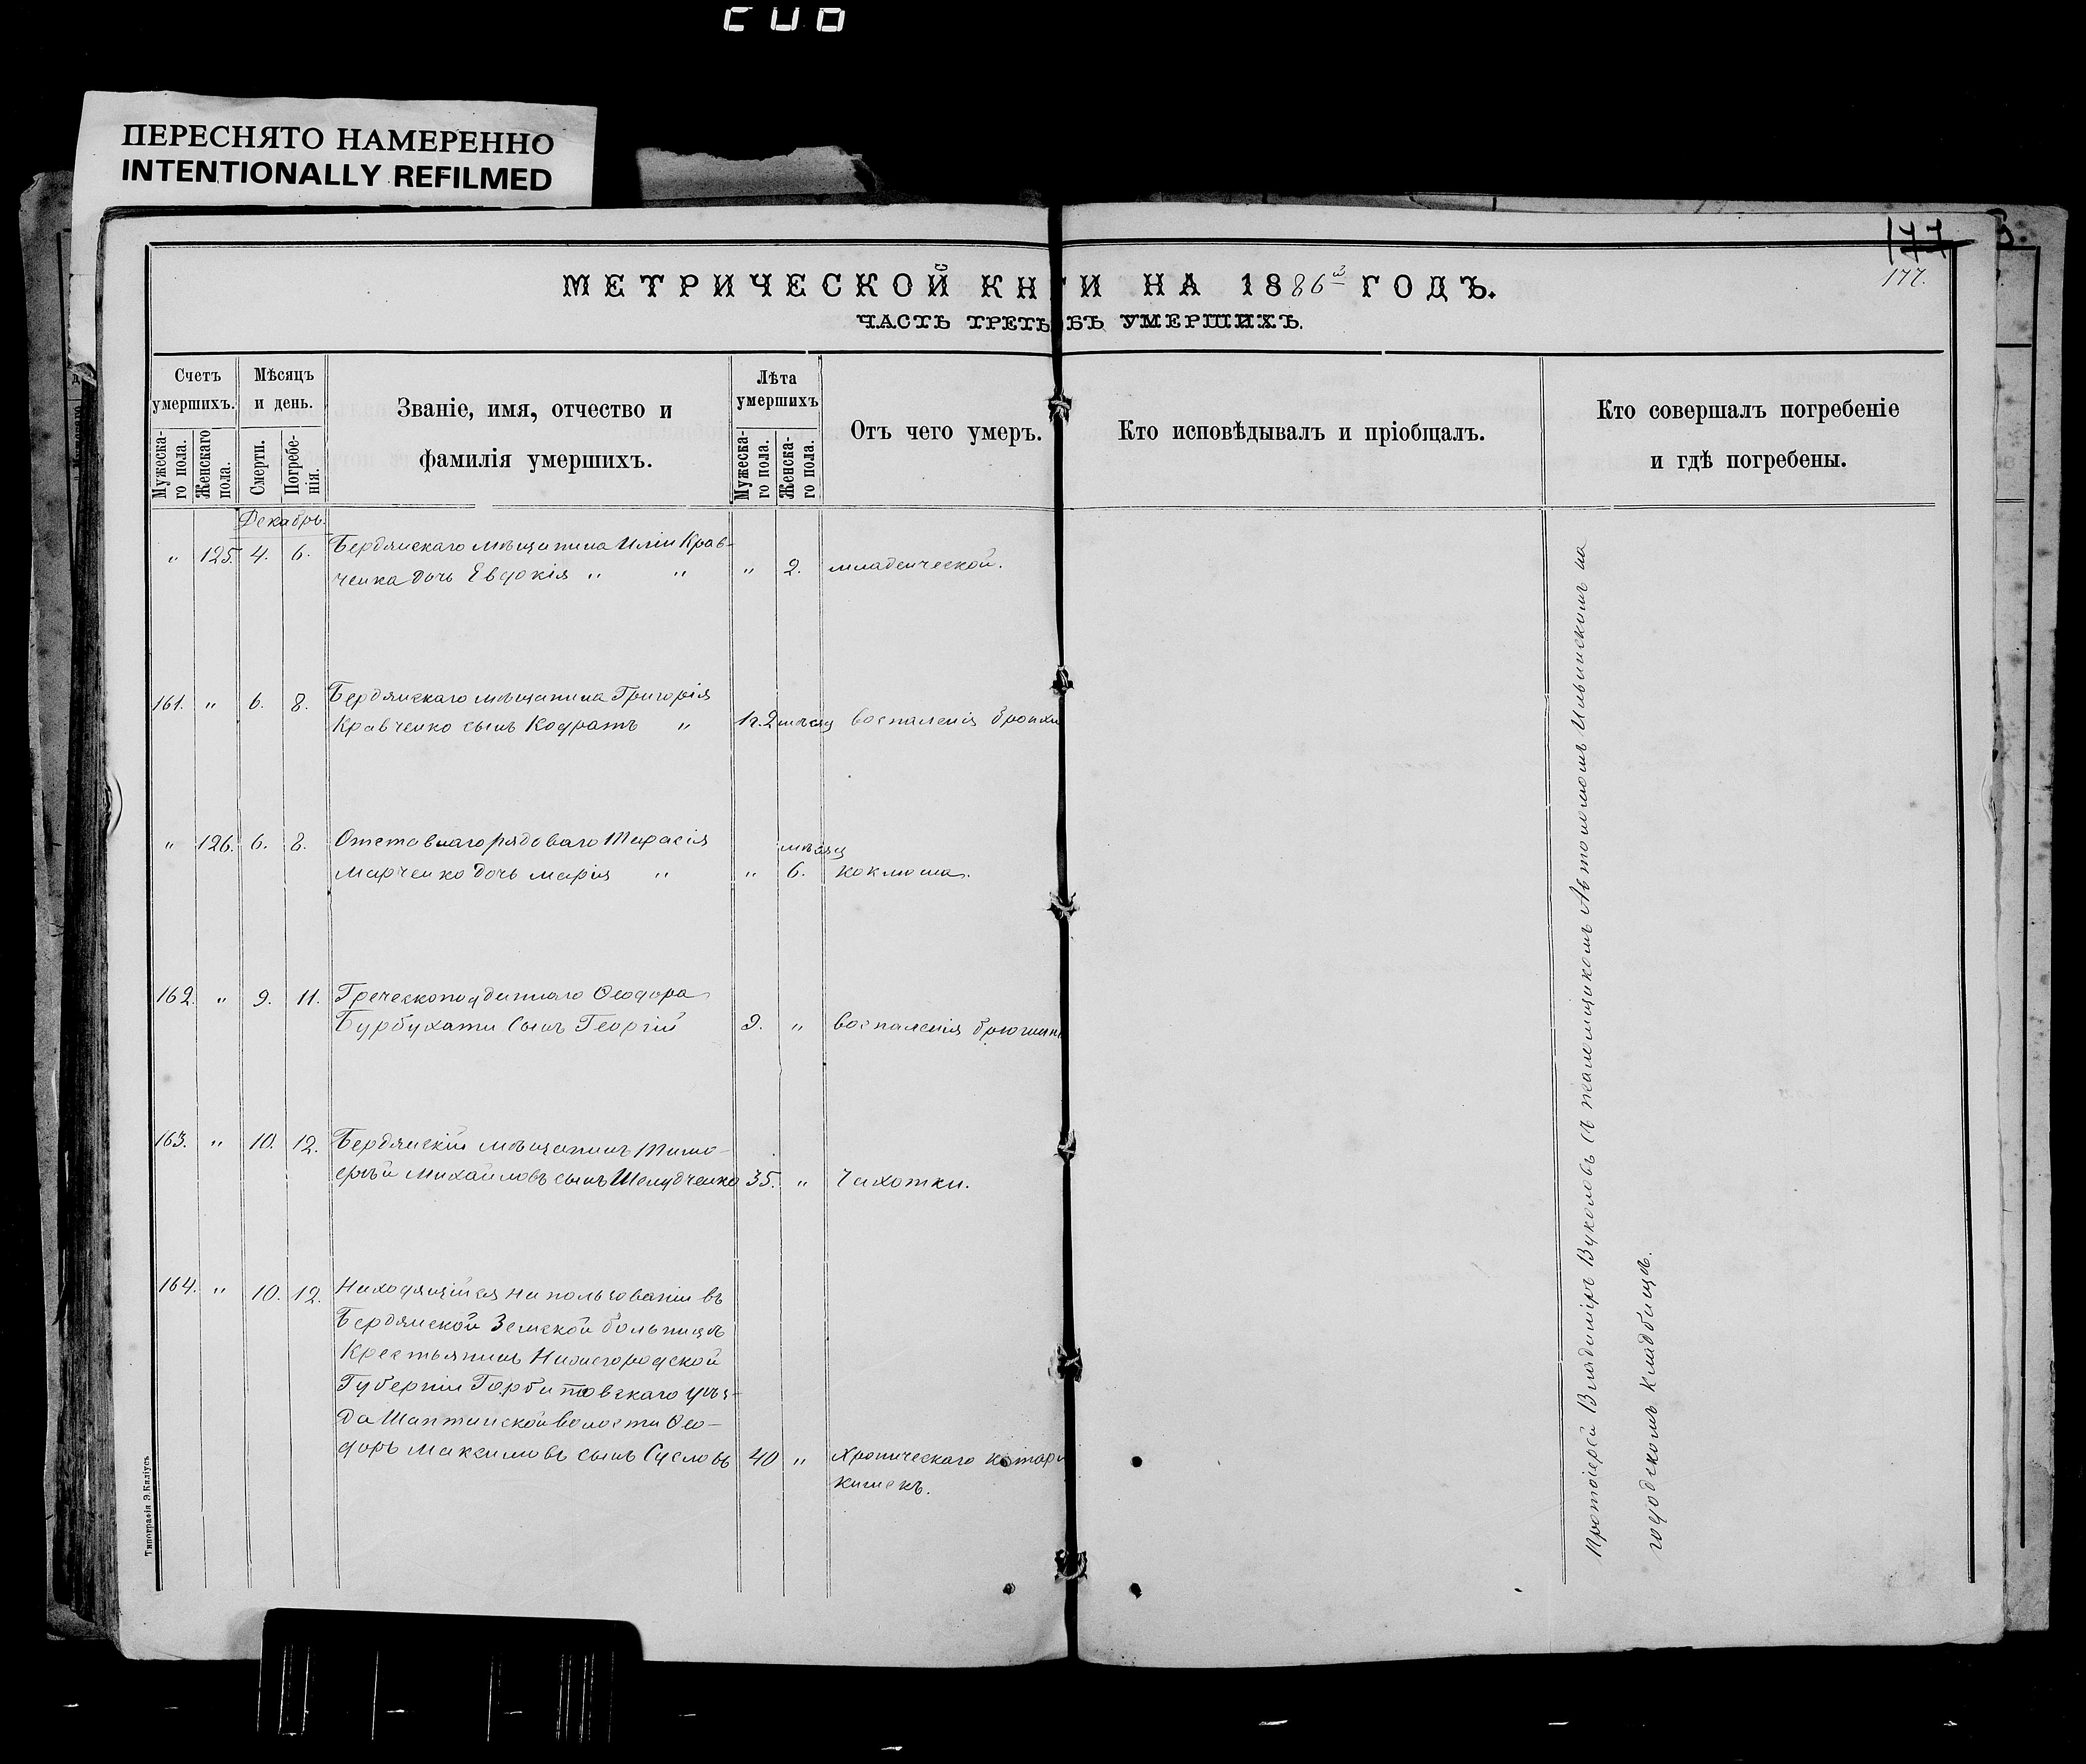 ПЕРЕСНЯТО НАМЕРЕННО
INTENTIONALLY REFILMED
177
177.
МЕТРИЧЕСКОЙ КН ГИ НА 1886й ГОДЪ.
ЧАСТЬ ТРЕТЬ ОБЪ УМЕРШИХЪ.
Счетъ умершихъ.
Мужеска-го пола.
Женскаго пола.
Мѣсяцъ и день.
Смерти.
Погребе-нія.
Званіе, имя, отчество и
фамилія умершихъ.
Лѣта умершихъ
Мужеска-го пола.
Женска-го пола.
Отъ чего умеръ.
Кто исповѣдывалъ и пріобщалъ.
Кто совершалъ погребеніе
и гдѣ погребены.
Декабрь.
" 125. 4. 6. Бердянскаго мѣщанина Иліи Крав-
ченка дочь Евдокія " " " 2. младенческой.
161. " 6. 8. Бердянскаго мѣщанина Григорія
Кравченко сынъ Кодратъ " 1г. 2 мѣсяц воспаленія бронхи
" 126. 6. 8. Отставнаго рядоваго Тарасія мѣсяц
Марченко дочь Марія " " 6. коклюша.
162. " 9. 11. Греческоподданнаго Ѳеодора
Бурбухати сынъ Георгій 9. " воспаленія брюшин
163. " 10. 12. Бердянскій мѣщанинъ Тимо-
ѳей Михайловъ сынъ Шелудченко 35. " Чахотки.
164. " 10. 12. Находящійся на пользованіи въ
Бердянской Земской больницѣ
Крестьянинъ Нижегородской
Губерніи Горбатовскаго уѣз-
да волости Ѳео-
доръ Максимовъ сынъ Сусловъ 40 " Хроническаго катара
кишекъ.
Протоіерей Владиміръ Вуколовъ съ псаломщикомъ Ильинскимъ на
городскомъ кладбищѣ.
Типографія Э. Киліусъ